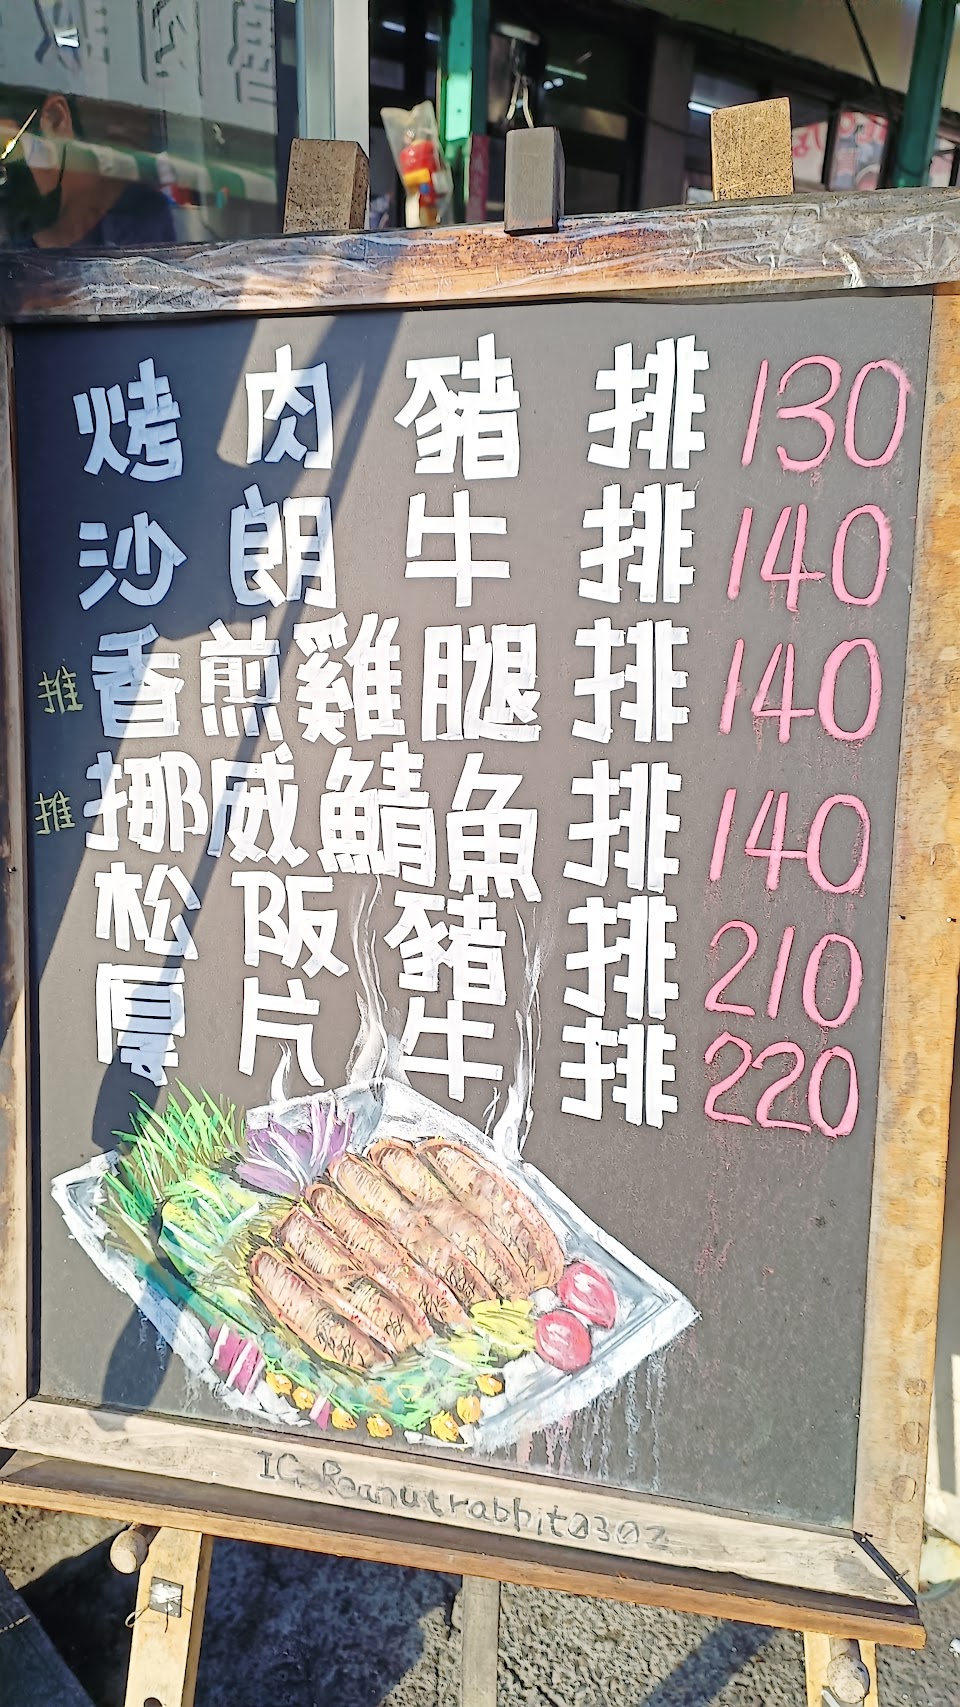 烤肉豬排 130
沙朗牛排 140
推 香煎雞腿排 140
推 挪威鯖魚排 140
松阪豬排 210
厚片牛排 220
IG Peanutrabbit0302